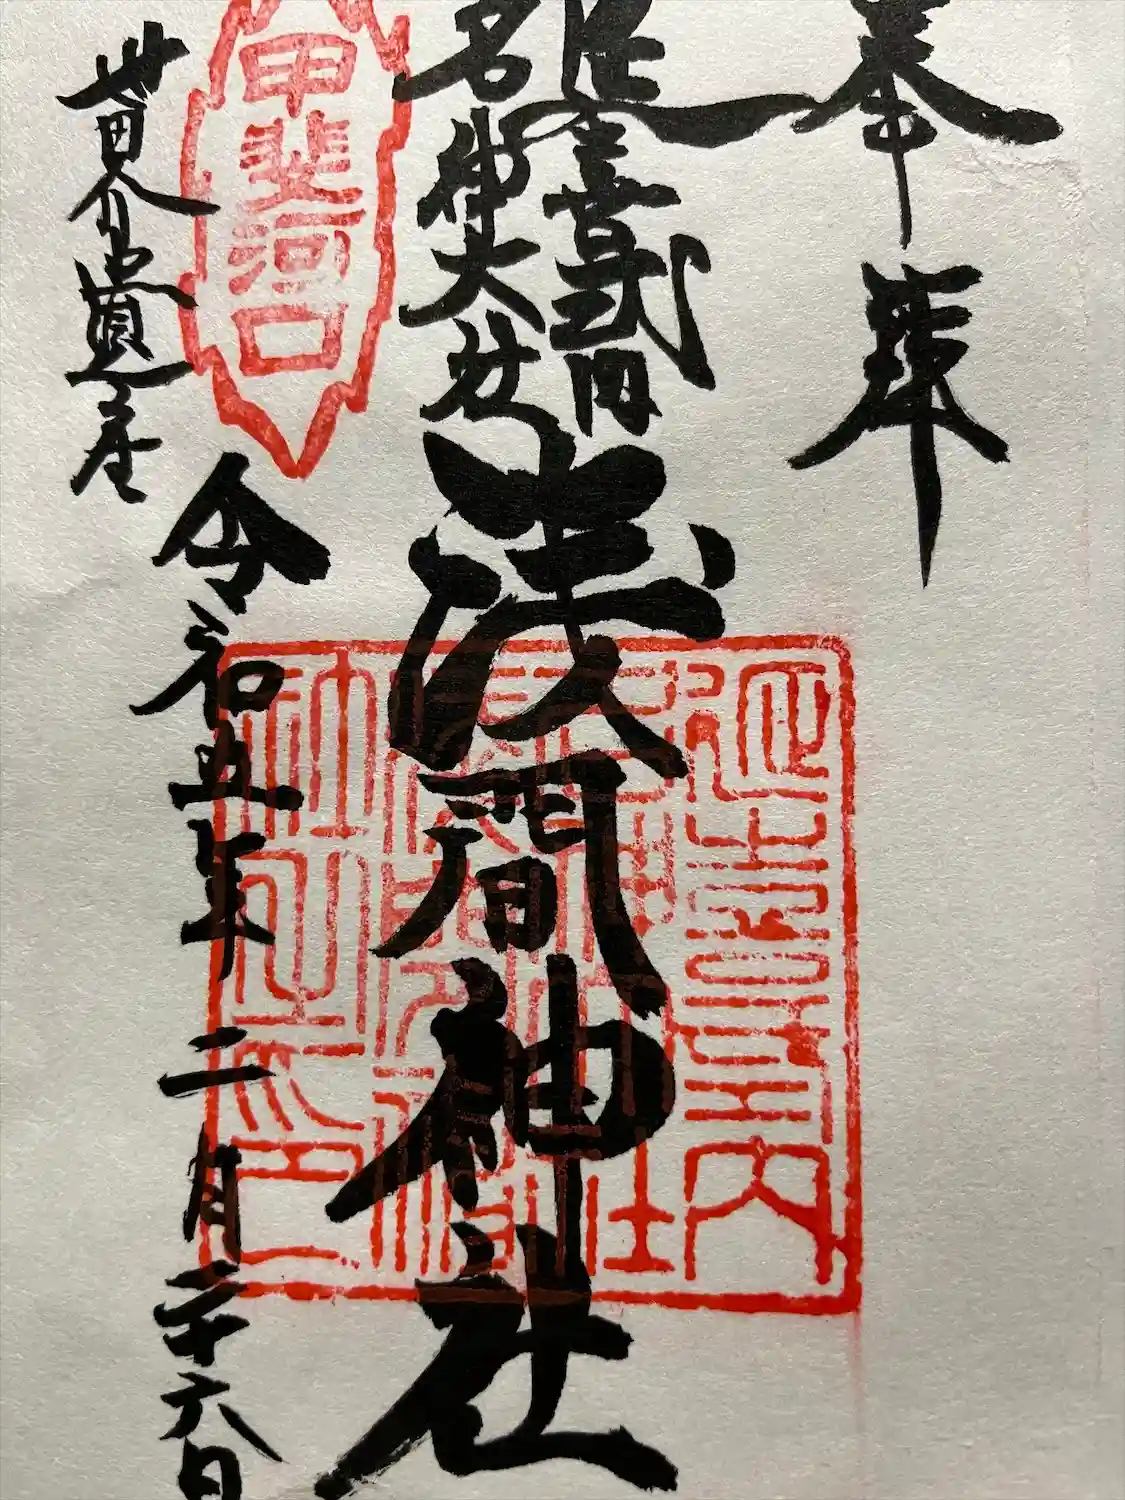 奉拝
延喜式内
名神大社
浅間神社
甲斐河口
令和五年二月二十六日
世界文化遺産